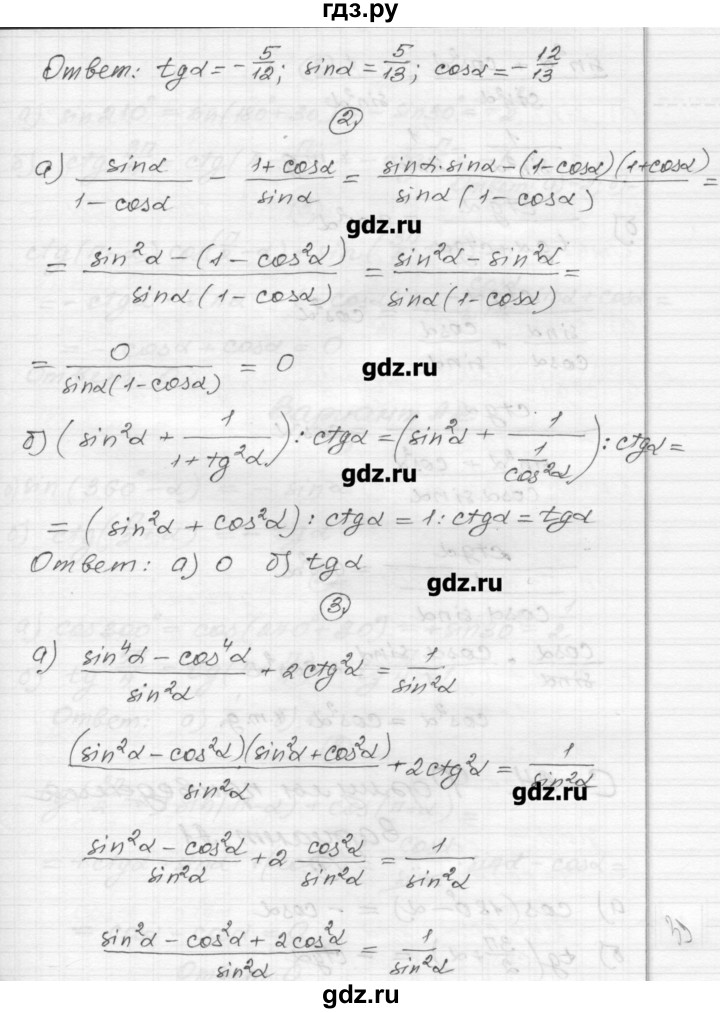 гдз.ру
Ответ: tgα = -5/12; sinα = 5/13; cosα = -12/13
2.
а) sinα/(1 - cosα) - (1 + cosα)/sinα = (sinα·sinα - (1 - cosα)(1 + cosα))/(sinα(1 - cosα)) =
gdz.ru
= (sin²α - (1 - cos²α))/(sinα(1 - cosα)) = (sin²α - sin²α)/(sinα(1 - cosα)) =
= 0/(sinα(1 - cosα)) = 0
gdz.ru
б) (sin²α + 1/(1 + tg²α)) : ctgα = (sin²α + 1/(1/cos²α)) : ctgα =
gdz.ru
= (sin²α + cos²α) : ctgα = 1 : ctgα = tgα
Ответ: а) 0 б) tgα
gdz.ru
3.
а) (sin⁴α - cos⁴α)/sin²α + 2ctg²α = 1/sin²α
((sin²α - cos²α)(sin²α + cos²α))/sin²α + 2ctg²α = 1/sin²α
gdz.ru
(sin²α - cos²α)/sin²α + 2 cos²α/sin²α = 1/sin²α
(sin²α - cos²α + 2cos²α)/sin²α = 1/sin²α
gdz.ru